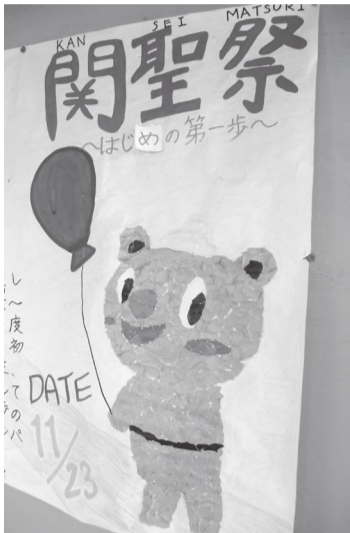 KAN SEI MATSURI
関聖祭
〜はじめの第一歩〜
DATE
11/23